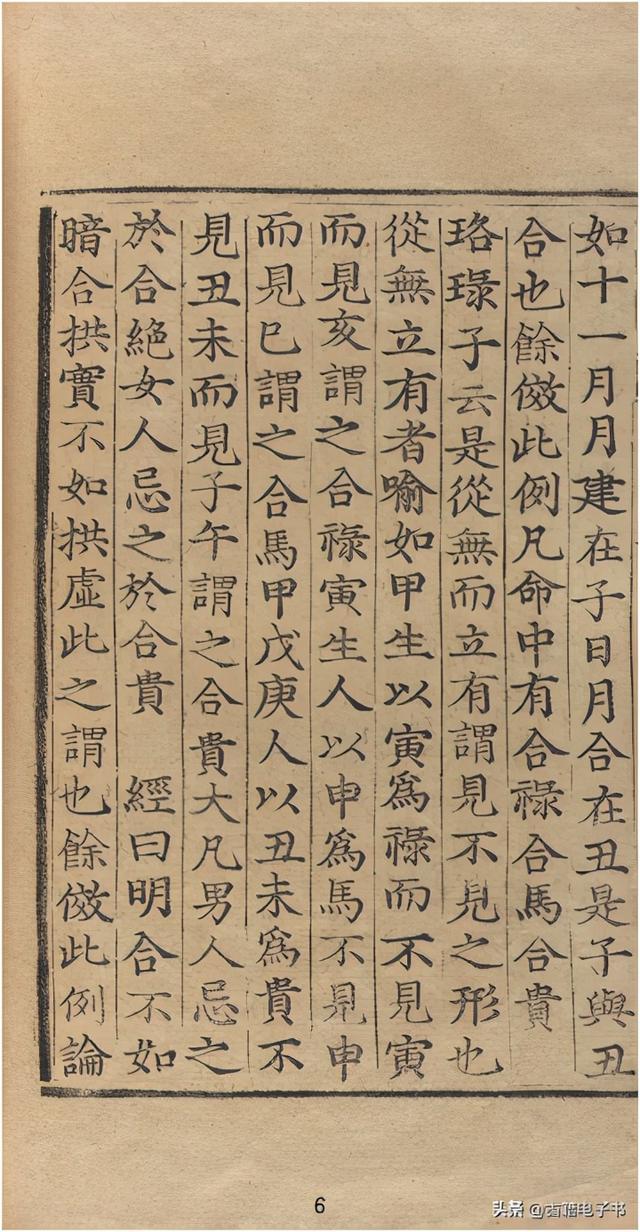 如十一月月建在子日月合在丑是子與丑
合也餘倣此例凡命中有合祿合馬合貴
珞琭子云是從無而立有謂見不見之形也
從無立有者喻如甲生以寅爲祿而不見寅
而見亥謂之合祿寅生人以申爲馬不見申
而見巳謂之合馬甲戊庚人以丑未爲貴不
見丑未而見子午謂之合貴大凡男人忌之
於合絶女人忌之於合貴　經曰明合不如
暗合拱實不如拱虛此之謂也餘倣此例論
6
头条 @古籍电子书